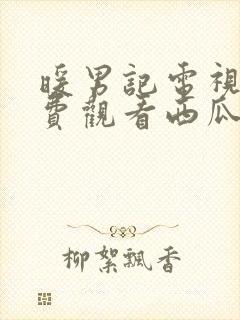 暖男記電視
費觀看西瓜
柳絮飄香